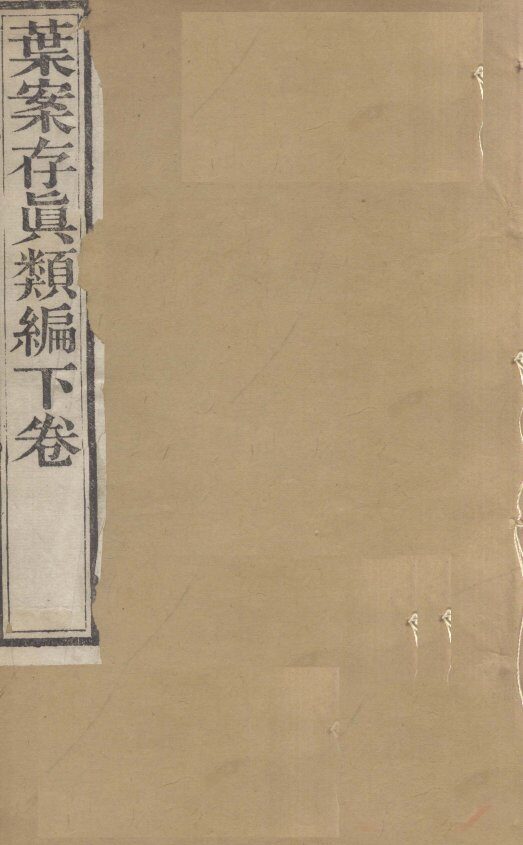 葉案存眞類編下卷